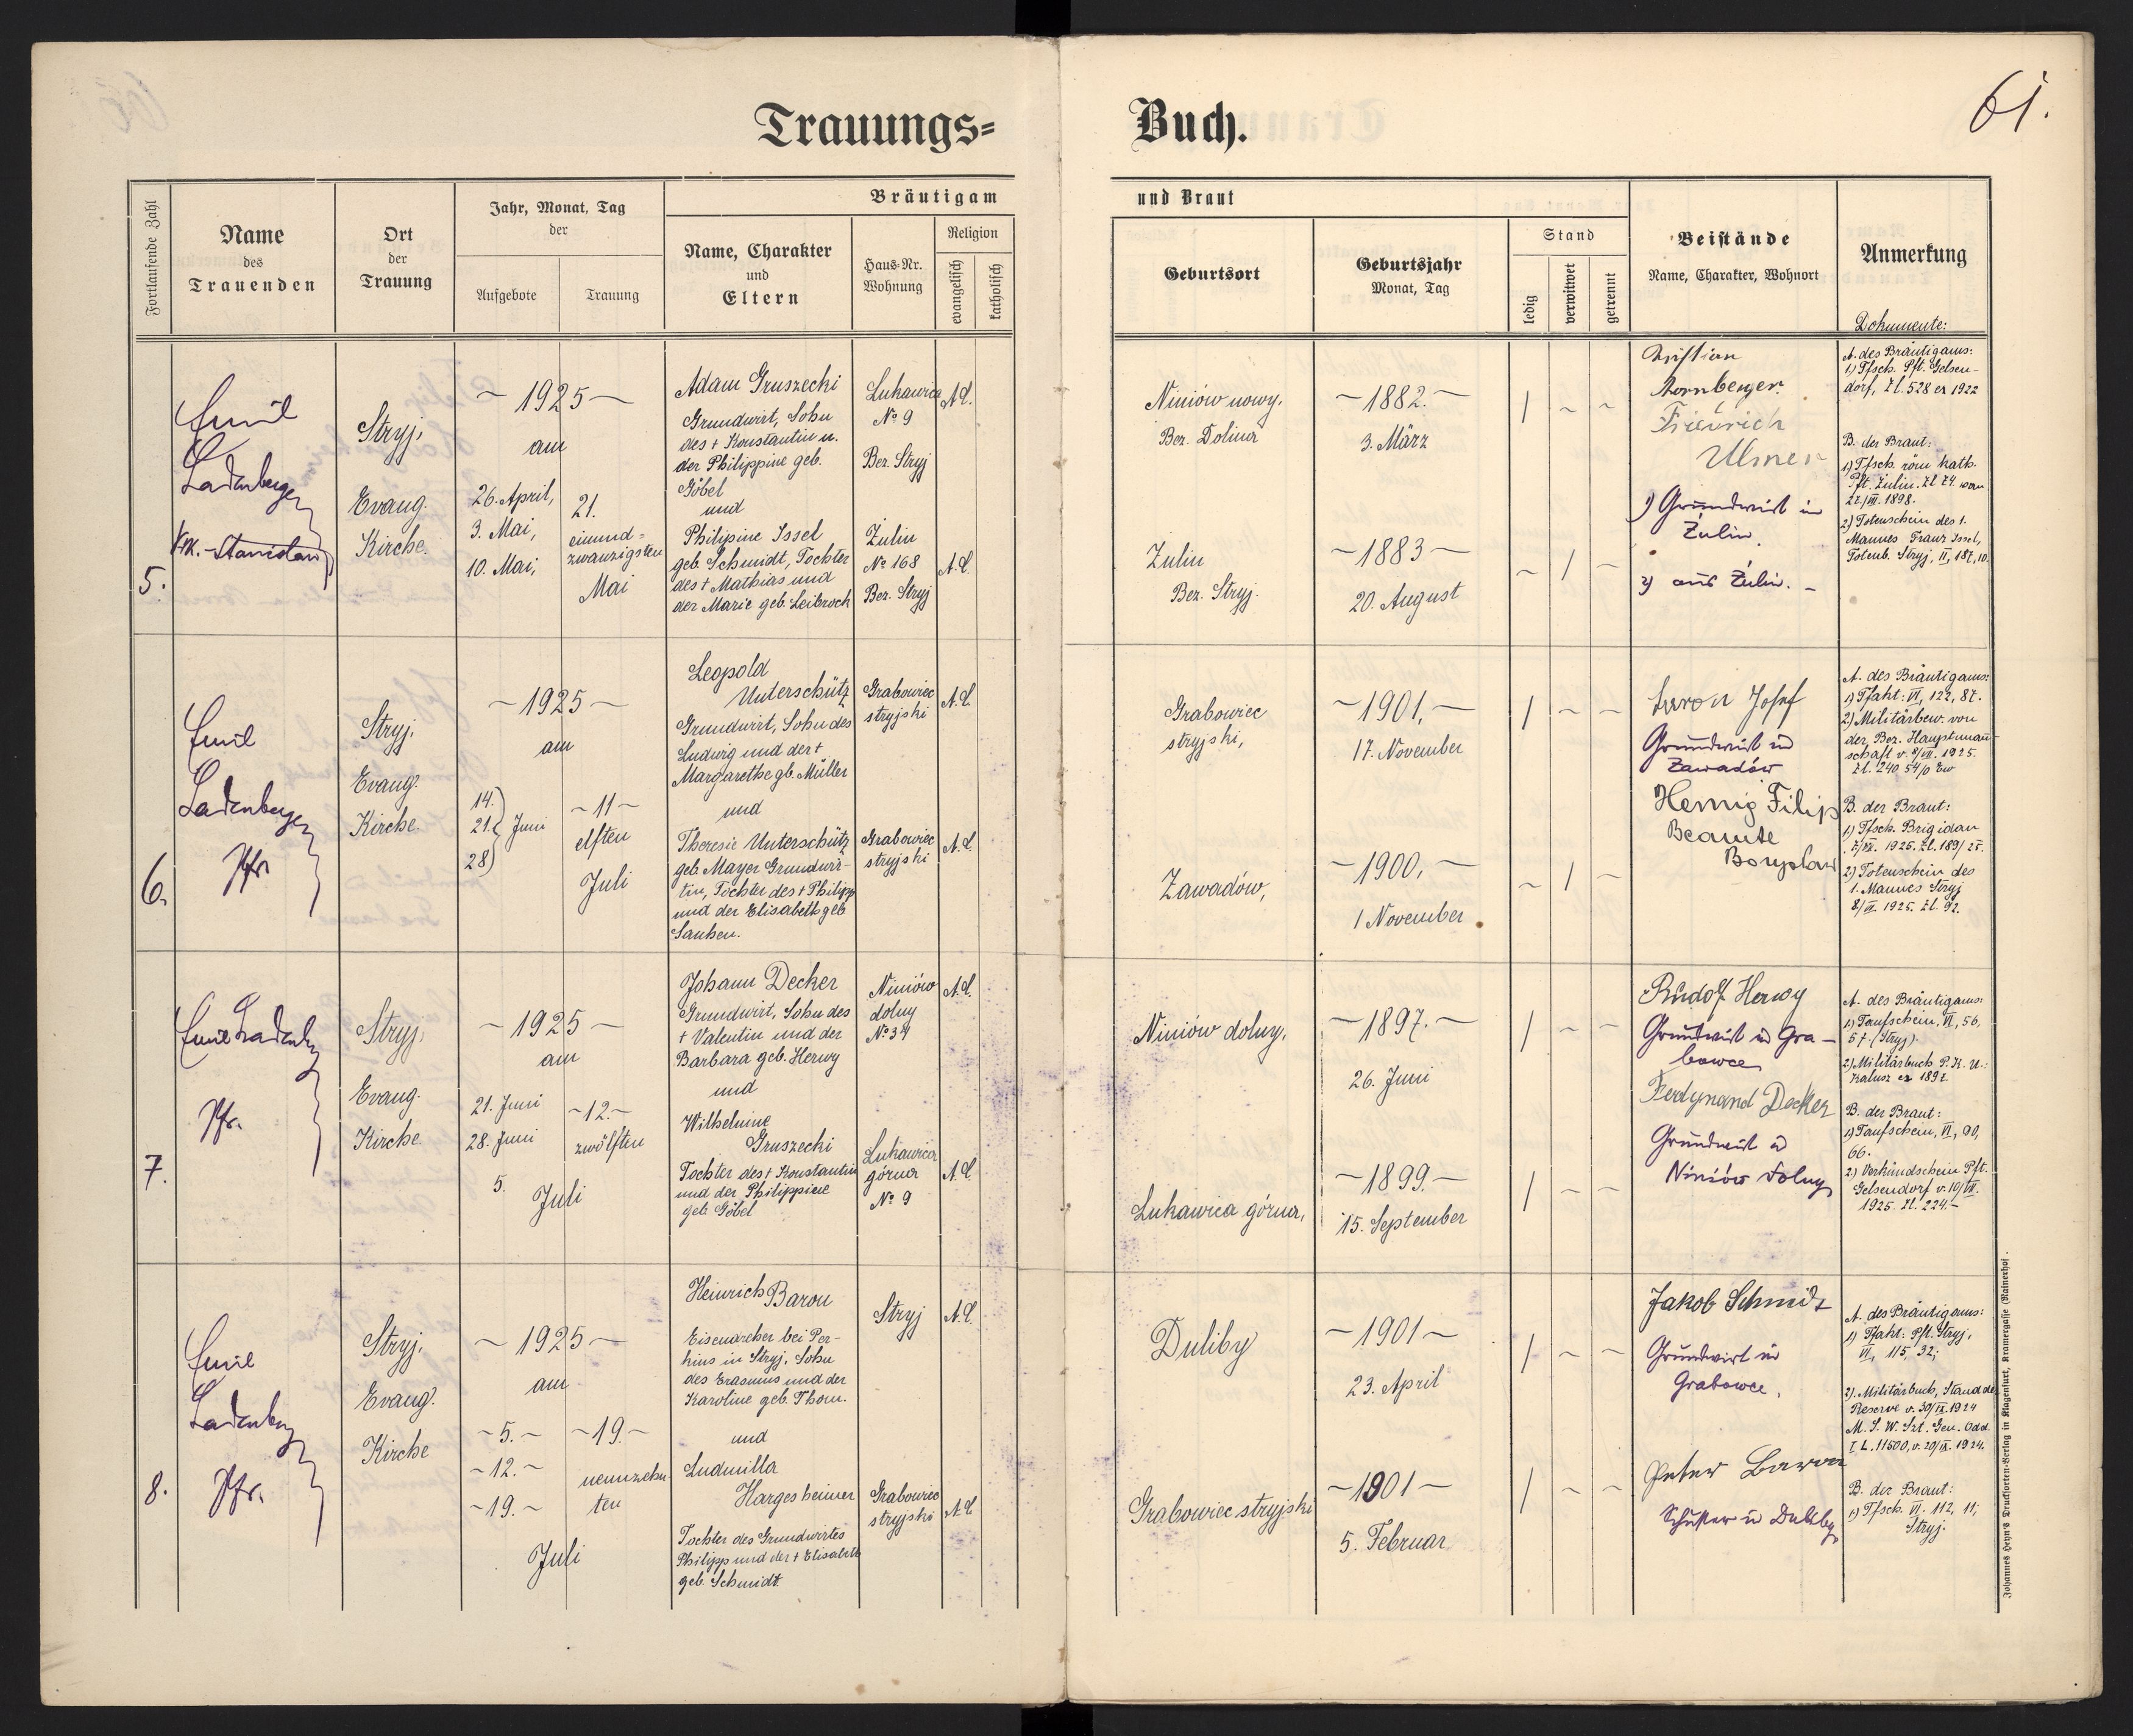 61.
Trauungs=
Buch.
Fortlaufende Zahl
Name
des
Trauenden
Ort
der
Trauung
Jahr, Monat, Tag
der
Aufgebote
Trauung
Bräutigam
Name, Charakter
und
Eltern
Haus-Nr.
Wohnung
Religion
evangelisch
katholisch
und Braut
Geburtsort
Geburtsjahr
Monat, Tag
Stand
ledig
verwitwet
getrennt
Beistände
Name, Charakter, Wohnort
Anmerkung
Dokumente:
5.
Emil
Ladenberger
Stryj,
Evang.
Kirche.
~ 1925 ~
am
26. April,
3. Mai,
10. Mai,
21.
einund=
zwanzigsten
Mai
Adam Gruszecki
Grundwirt, Sohn
des + Konstantin u.
der Philippine geb.
Göbel
und
Philipine Issel
geb. Schmidt, Tochter
des + Mathias und
der Marie geb. Leibrock
Lukawica
No 9
Bez. Stryj
Zulin
No 168
Bez. Stryj
A.C.
A.C.
Niniów nowy,
Bez. Dolina
Zulin
Bez. Stryj.
~ 1882. ~
3. März
~ 1883 ~
20. August
/ ~ ~
~ / ~
Kornberger
Friedrich
Ulmer
1) Grundwirt in
Zulin.
2) aus Zulin. –
A. des Bräutigams:
1) Tfsch. Pft. Gelsen-
dorf, Zl. 528 ex 1922
B. der Braut:
1) Tfsch. röm kath.
Pft. Zulin. Zl 74 vom
1898.
2) Totenschein des 1.
Mannes Franz Issel,
Totenb. Stryj, II, 187, 10.
6.
Emil
Ladenberger
Pfr
Stryj.
Evang.
Kirche.
~ 1925 ~
am
14.
21. Juni
28
~ 11 ~
elften
Juli
Leopold
Unterschütz
Grundwirt, Sohn des
Ludwig und der +
Margarethe gb. Müller
und
Theresie Unterschütz
geb. Mayer Grundwir-
tin, Tochter des + Philipp
und der Elisabeth geb
Grabowiec
stryjski
Grabowiec
stryjski
A.C.
A.C.
Grabowiec
stryjski,
Zawadów,
~ 1901, ~
17. November
~ 1900, ~
1 November
/ ~ ~
~ / ~
Josef
Grundwirt in
Zawadów
Hennig Filip
Beamte
Boryslaw
A. des Bräutigams:
1) Tfakt: VI, 122, 87.
2) Militärbew. von
der Bez. Hauptmann-
schaft v. 8/VII. 1925.
B. der Braut:
1) Tfsch. Brigidau
2) Totenschein des
1. Mannes Stryj
1925. Zl. 92.
7.
Emil Ladenberg
Pfr.
Stryj,
Evang.
Kirche.
~ 1925 ~
am
21. Juni
28. Juni
5.
~ 12. ~
zwölften
Juli
Johann Decker
Grundwirt, Sohn des
+ Valentin und der
Barbara geb. Herwy
und
Wilhelmine
Gruszecki
Tochter des + Konstantin
und der Philippine
geb. Göbel
Niniów
dolny
No 34
Lukawica
górna
No 9
A.C.
A.C.
Niniów dolny,
Lukawica górna,
~ 1897. ~
26. Juni
~ 1899. ~
15. September
/ ~ ~
/ ~ ~
Rudolf Herwy
Grundwirt in Gra-
bowce
Ferdynand Decker
Grundwirt in
Niniów dolny
A. des Bräutigams:
1) Taufschein, VI, 56,
57. (Stryj).
2) Militärbuch P.K.U.:
Kalusz ex 1897
B. der Braut:
1) Taufschein, VI, 90,
66.
2) Verkündschein Pft.
Gelsendorf v. 10/VII.
1925. Zl. 224. –
8.
Emil
Ladenberg
Pfr.
Stryj.
Evang.
Kirche
~ 1925 ~
am
~ 5. ~
~ 12. ~
~ 19. ~
~ 19. ~
neunzehn
ten
Juli
Heinrich Baron
Eisendreher bei Per-
kins in Stryj, Sohn
des Erasmus und der
Karoline geb. Thom.
und
Ludmilla
Hargesheimer
Tochter des Grundwirtes
Philipp und der + Elisabeth
geb. Schmidt.
Stryj
Grabowiec
stryjski
A.C.
A.C.
Duliby
Grabowiec stryjski
~ 1901 ~
23. April
~ 1901 ~
5. Februar
/ ~ ~
/ ~ ~
Jakob Schmidt
Grundwirt in
Grabowce.
Peter Baron
Schuster in Duliby
A. des Bräutigams:
1) Tfakt: Pft. Stryj,
VI, 115, 32;
2). Militärbuch, Stand der
Reserve v. 30/IX. 1924
M. S. W. Szt. Gen. Odd.
I L. 11500, v. 20/IX. 1924.
B. der Braut:
1) Tfsch. VI. 112, 11,
Stryj.
Johannes Heyn's Drucksorten-Verlag in Klagenfurt, Kramergasse (Rainerhof).